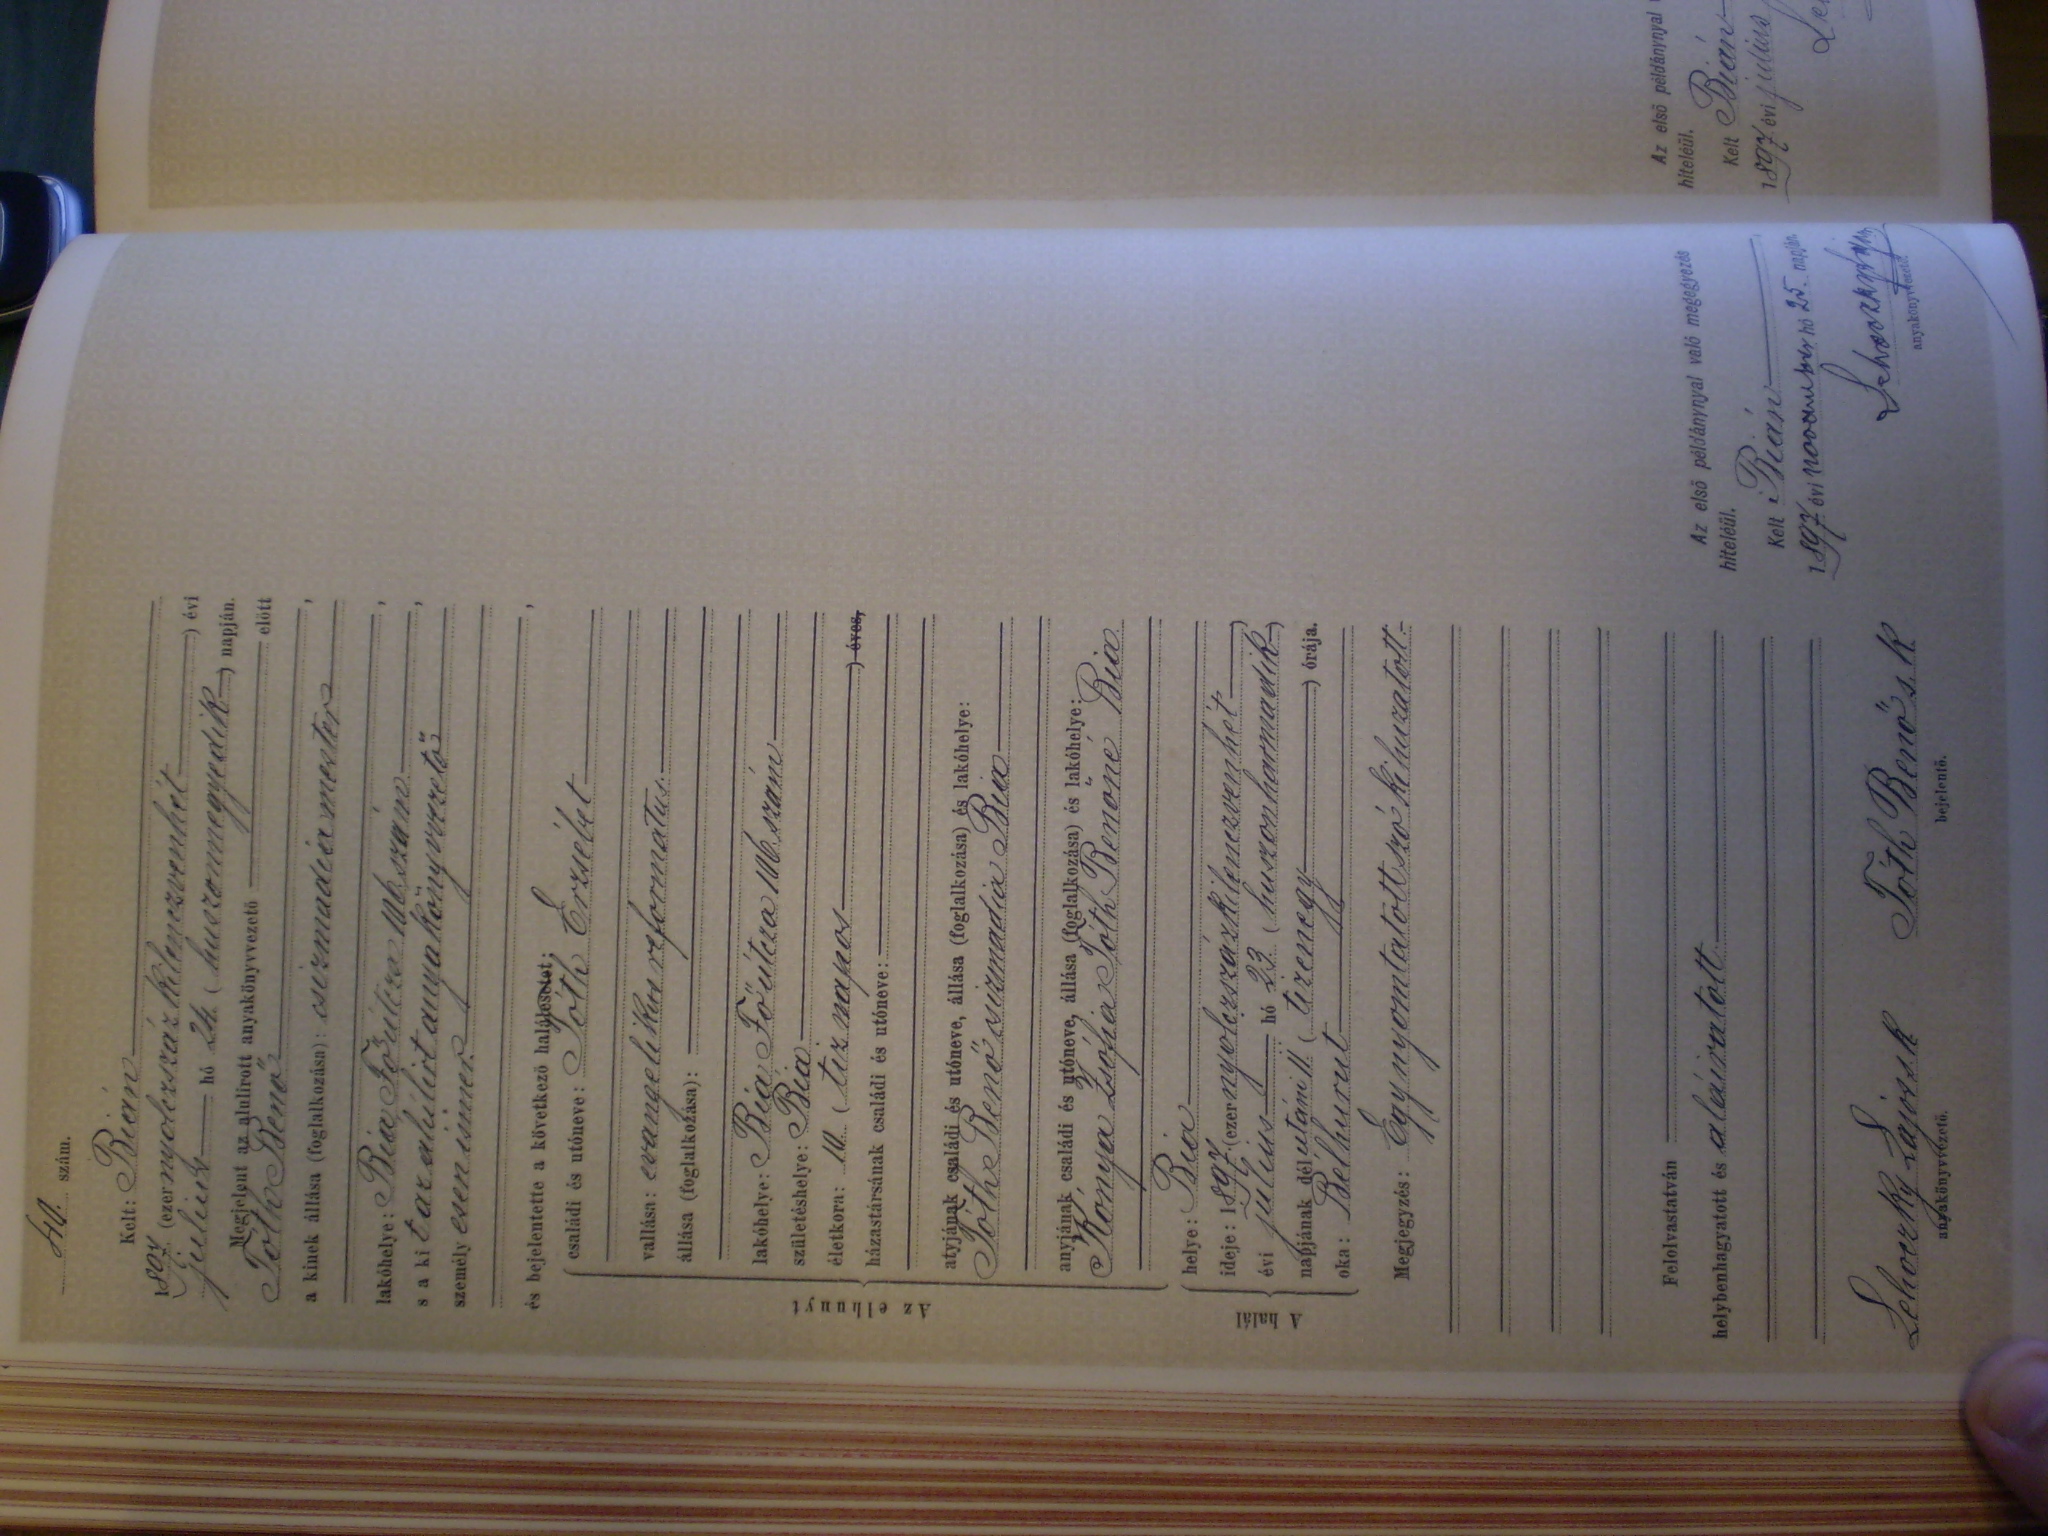 40. szám.
Kelt: Bián
1897 (ezernyolczszázkilenczvenhét) évi
julius hó 24. (huszonnegyedik) napján.
Megjelent az alulirott anyakönyvvezető előtt
Tóth Benő
a kinek állása (foglalkozása): csizmadia mester,
lakóhelye: Bia Főútcza 106 szám,
s a kit az alúlirt anyakönyvvezető,
személyesen ismer,
és bejelentette a következő halálesetet:
Az elhunyt
családi és utóneve: Tóth Erzsébet
vallása: evangelikus református.
állása (foglalkozása):
lakóhelye: Bia Főútcza 106 szám
születéshelye: Bia
életkora: 10. (tiz napos) éves,
házastársának családi és utóneve:
atyjának családi és utóneve, állása (foglalkozása) és lakóhelye:
Tóth Benő csizmadia Bia
anyjának családi és utóneve, állása (foglalkozása) és lakóhelye:
Kónya Zsófia Tóth Benőné Bia
A halál
helye: Bia
ideje: 1897 (ezernyolczszázkilenczvenhét)
évi julius hó 23. (huszonharmadik)
napjának dél utáni 11. (tizenegy) órája.
oka: Bélhurut
Megjegyzés: Egy nyomtatott szó kihuzatott.
Felolvastatván
helybenhagyatott és aláiratott.
Lehoczky Lajos s.k.
anyakönyvvezető.
Tóth Benő s.k.
bejelentő.
Az első példánynyal való megegyezés
hiteléül.
Kelt Bián
1897 évi november hó 25. napján.
anyakönyvvezető.
Az első példánynyal
hiteléül.
Kelt Bián
1897 évi julius